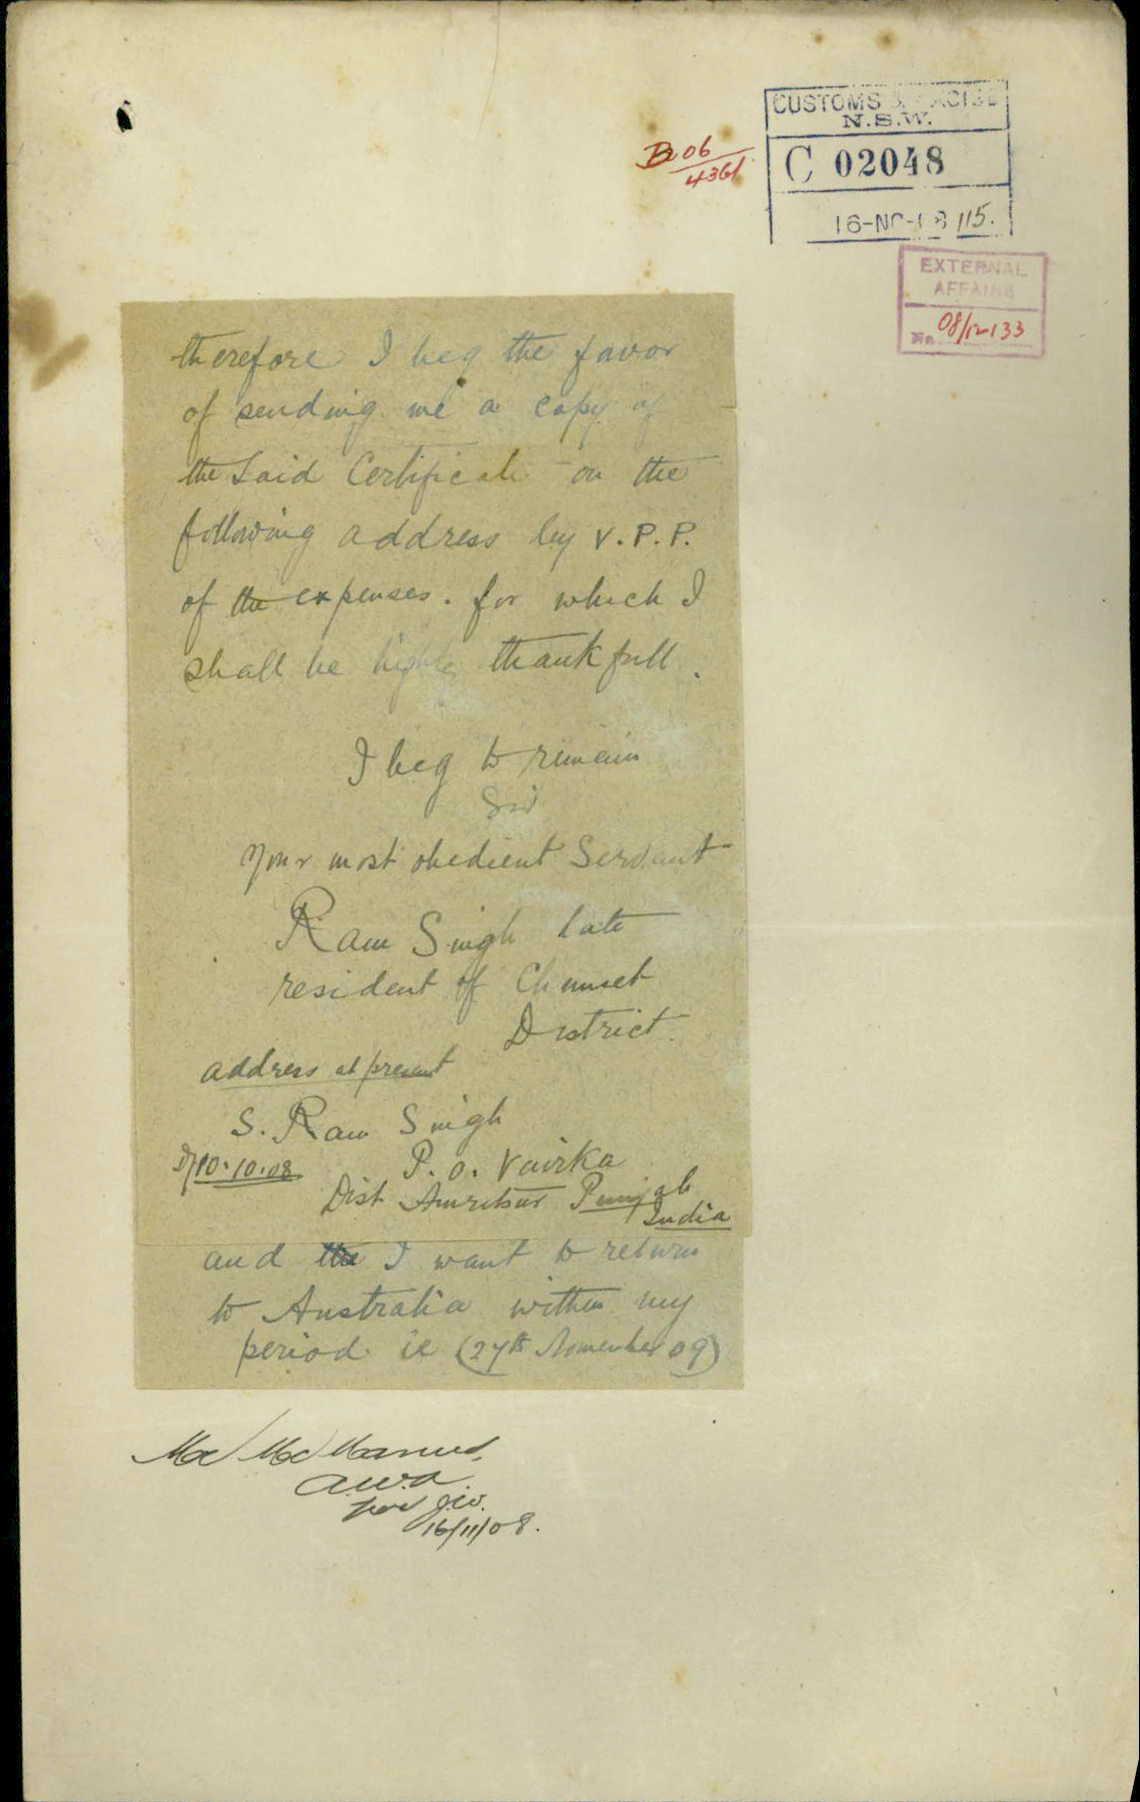 CUSTOMS & EXCISE
N.S.W.
C 02048
16-NO- 8 115.
B 06
4361
EXTERNAL
AFFAIRS
No. 08/12133
therefore I beg the favor
of sending me a copy of
the Said Certificate on the
following address by V.P.P.
of the expenses. for which I
shall be highly thankfull.
I beg to remain
Sir
Your most obedient Servant
Ram Singh late
resident of
District.
address at present
S. Ram Singh
10.10.08
P.O. Vairka
Dist Amritsur Punjab
India
and the I want to return
to Australia within my
period ie (27th November 09)
McManus,
for
16/11/08.